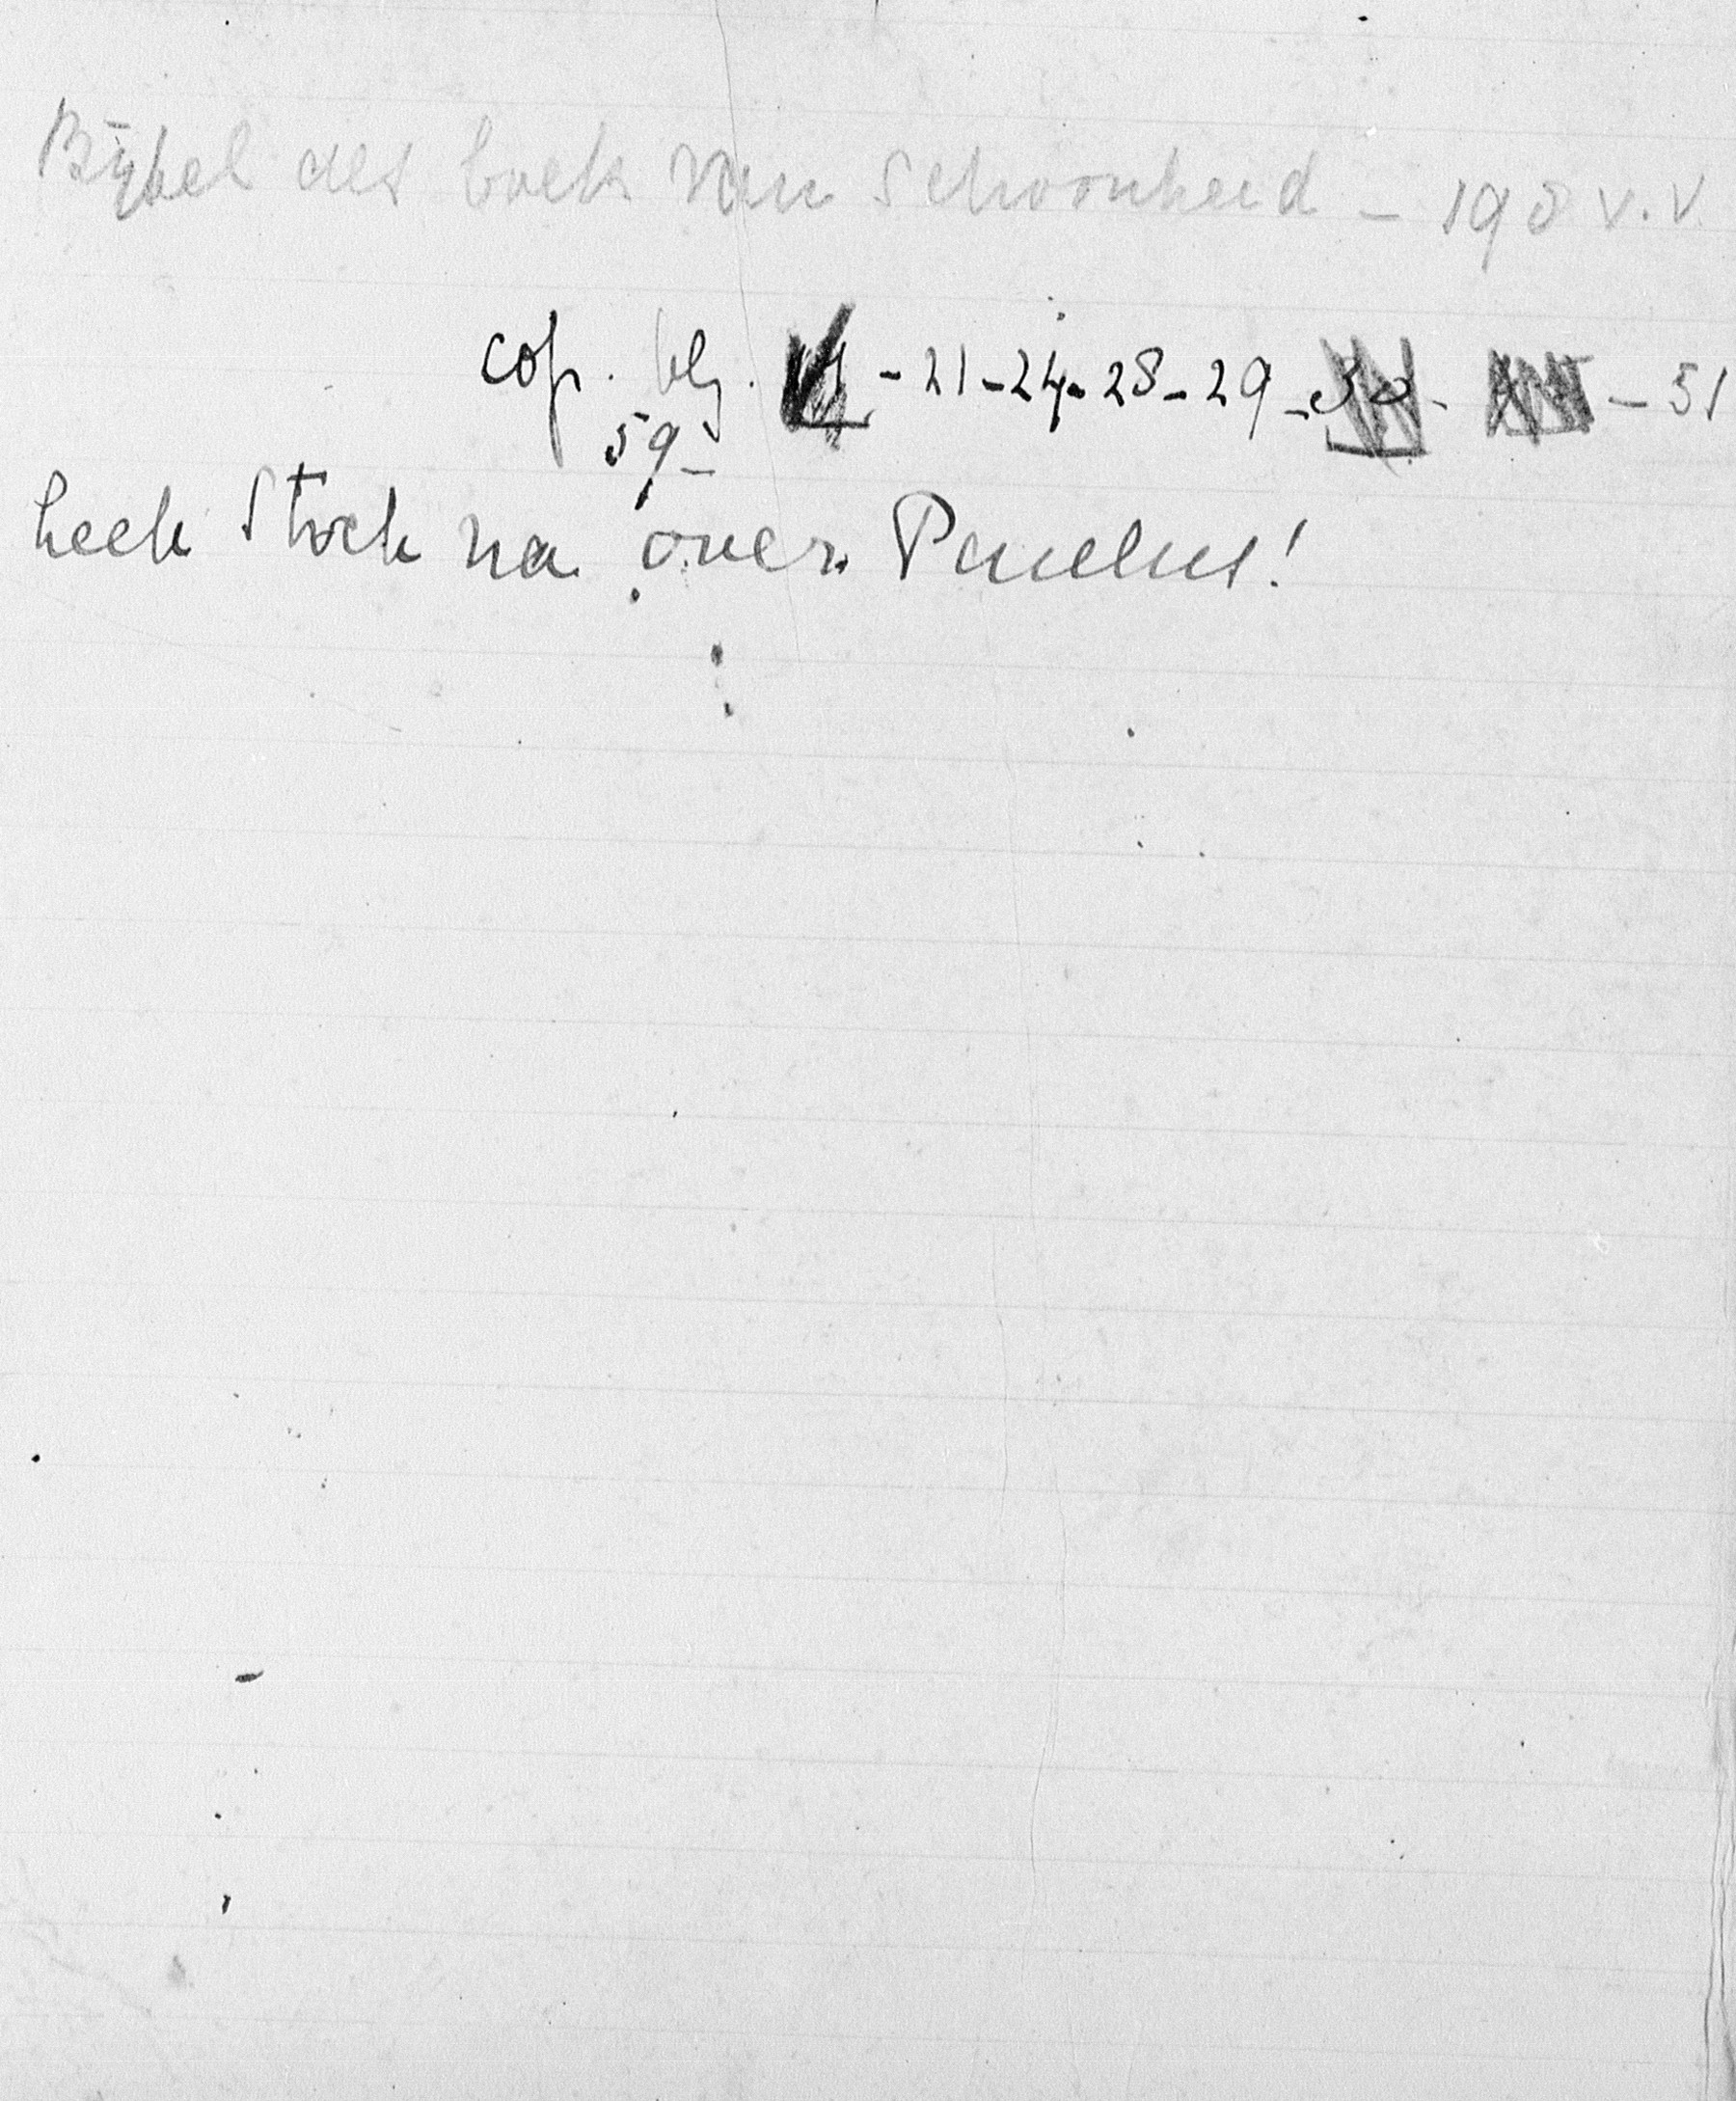 Bijbel als boek van Schoonheid – 198 v.v.
cop. blz. - 21 - 24 - 28 - 29 - 30 - - 51
59 -
Zoek Stock na over Paulus!